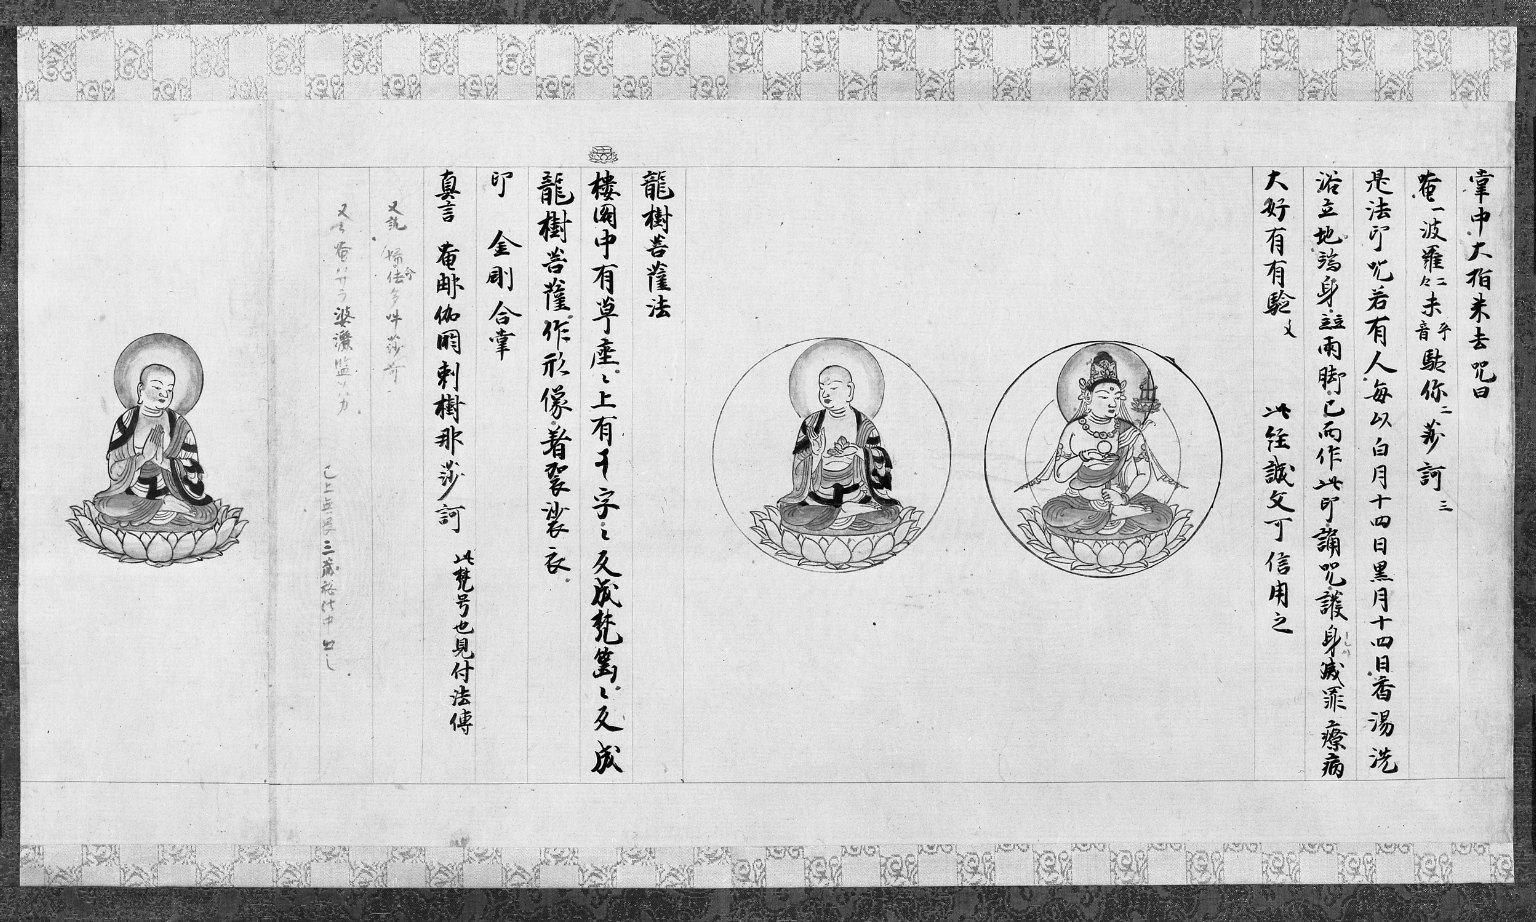 掌中大指来去呪曰
唵一波羅々二未音平馱你二莎訶三
是法印呪若有人每以白月十四日黒月十四日香湯洗
浴立地端身並兩脚已而作此印誦呪護身滅罪療病
大好有有驗文 此経誠文可信用之
龍樹菩薩法
樓閣中有草座〻上有
字〻反成梵篋〻反成
龍樹菩薩作形像著袈裟衣
印 金剛合掌
真言 唵那伽閼剌樹那莎訶 此梵号也見付法傳
又説
又云唵 婆濕
已上 三蔵